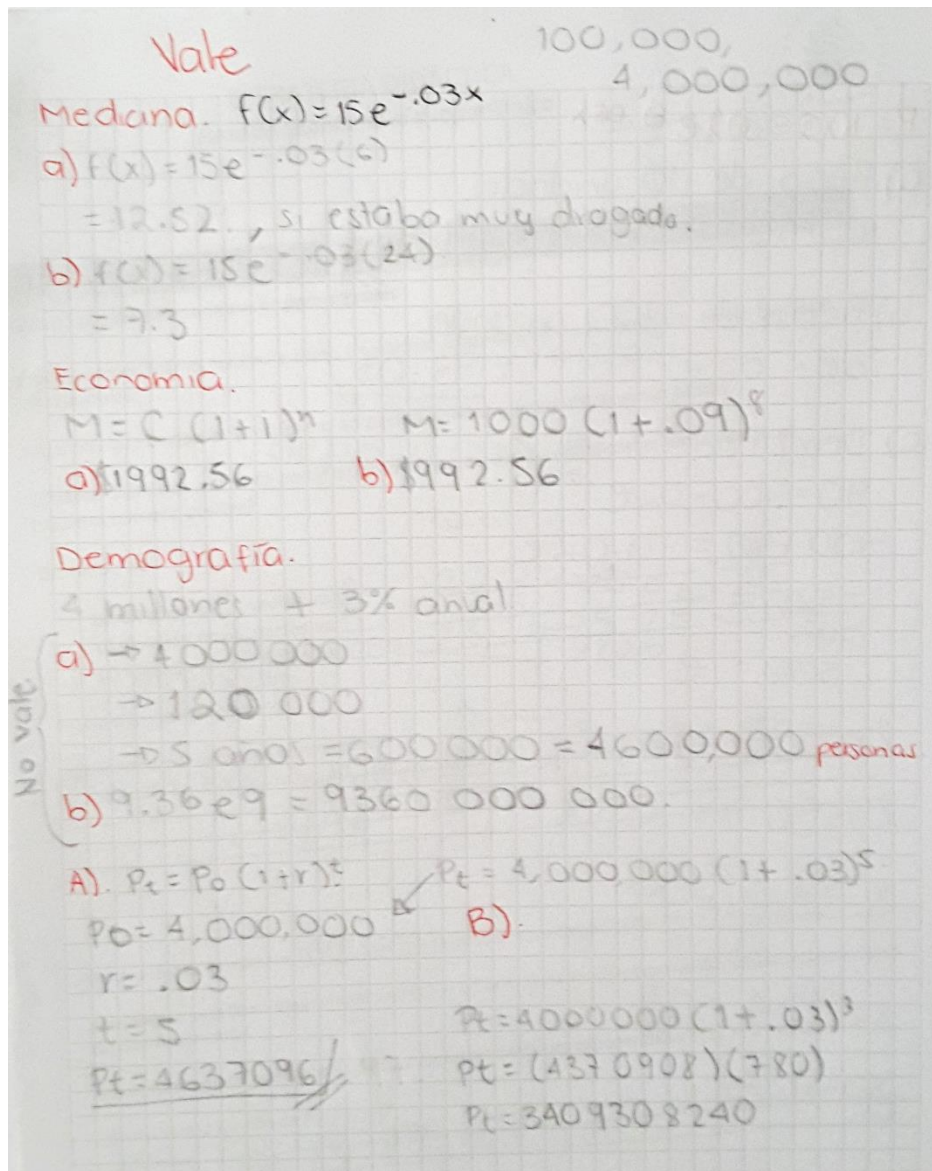 Vale
100,000,
4,000,000
Mediana. f(x)=15e^-.03x
a) f(x)=15e^-.03(6)
=12.52, si estabo muy drogado.
b) f(x)=15e^-.03(24)
=7.3
Economia.
M=C(1+i)^n M=1000(1+.09)^8
a)$1992.56 b)$992.56
Demografía.
4 millones + 3% anual
No vale
a) →4000000
→120 000
→5 anos =600000=4600,000 personas
b) 9.36e9=9360 000 000.
A). Pt=Po(1+r)^t Pt=4,000,000(1+.03)^5
Po=4,000,000 B).
r=.03
t=5 Pt=4000000(1+.03)^3
Pt=4637096 Pt=(4370908)(780)
Pt=3409308240